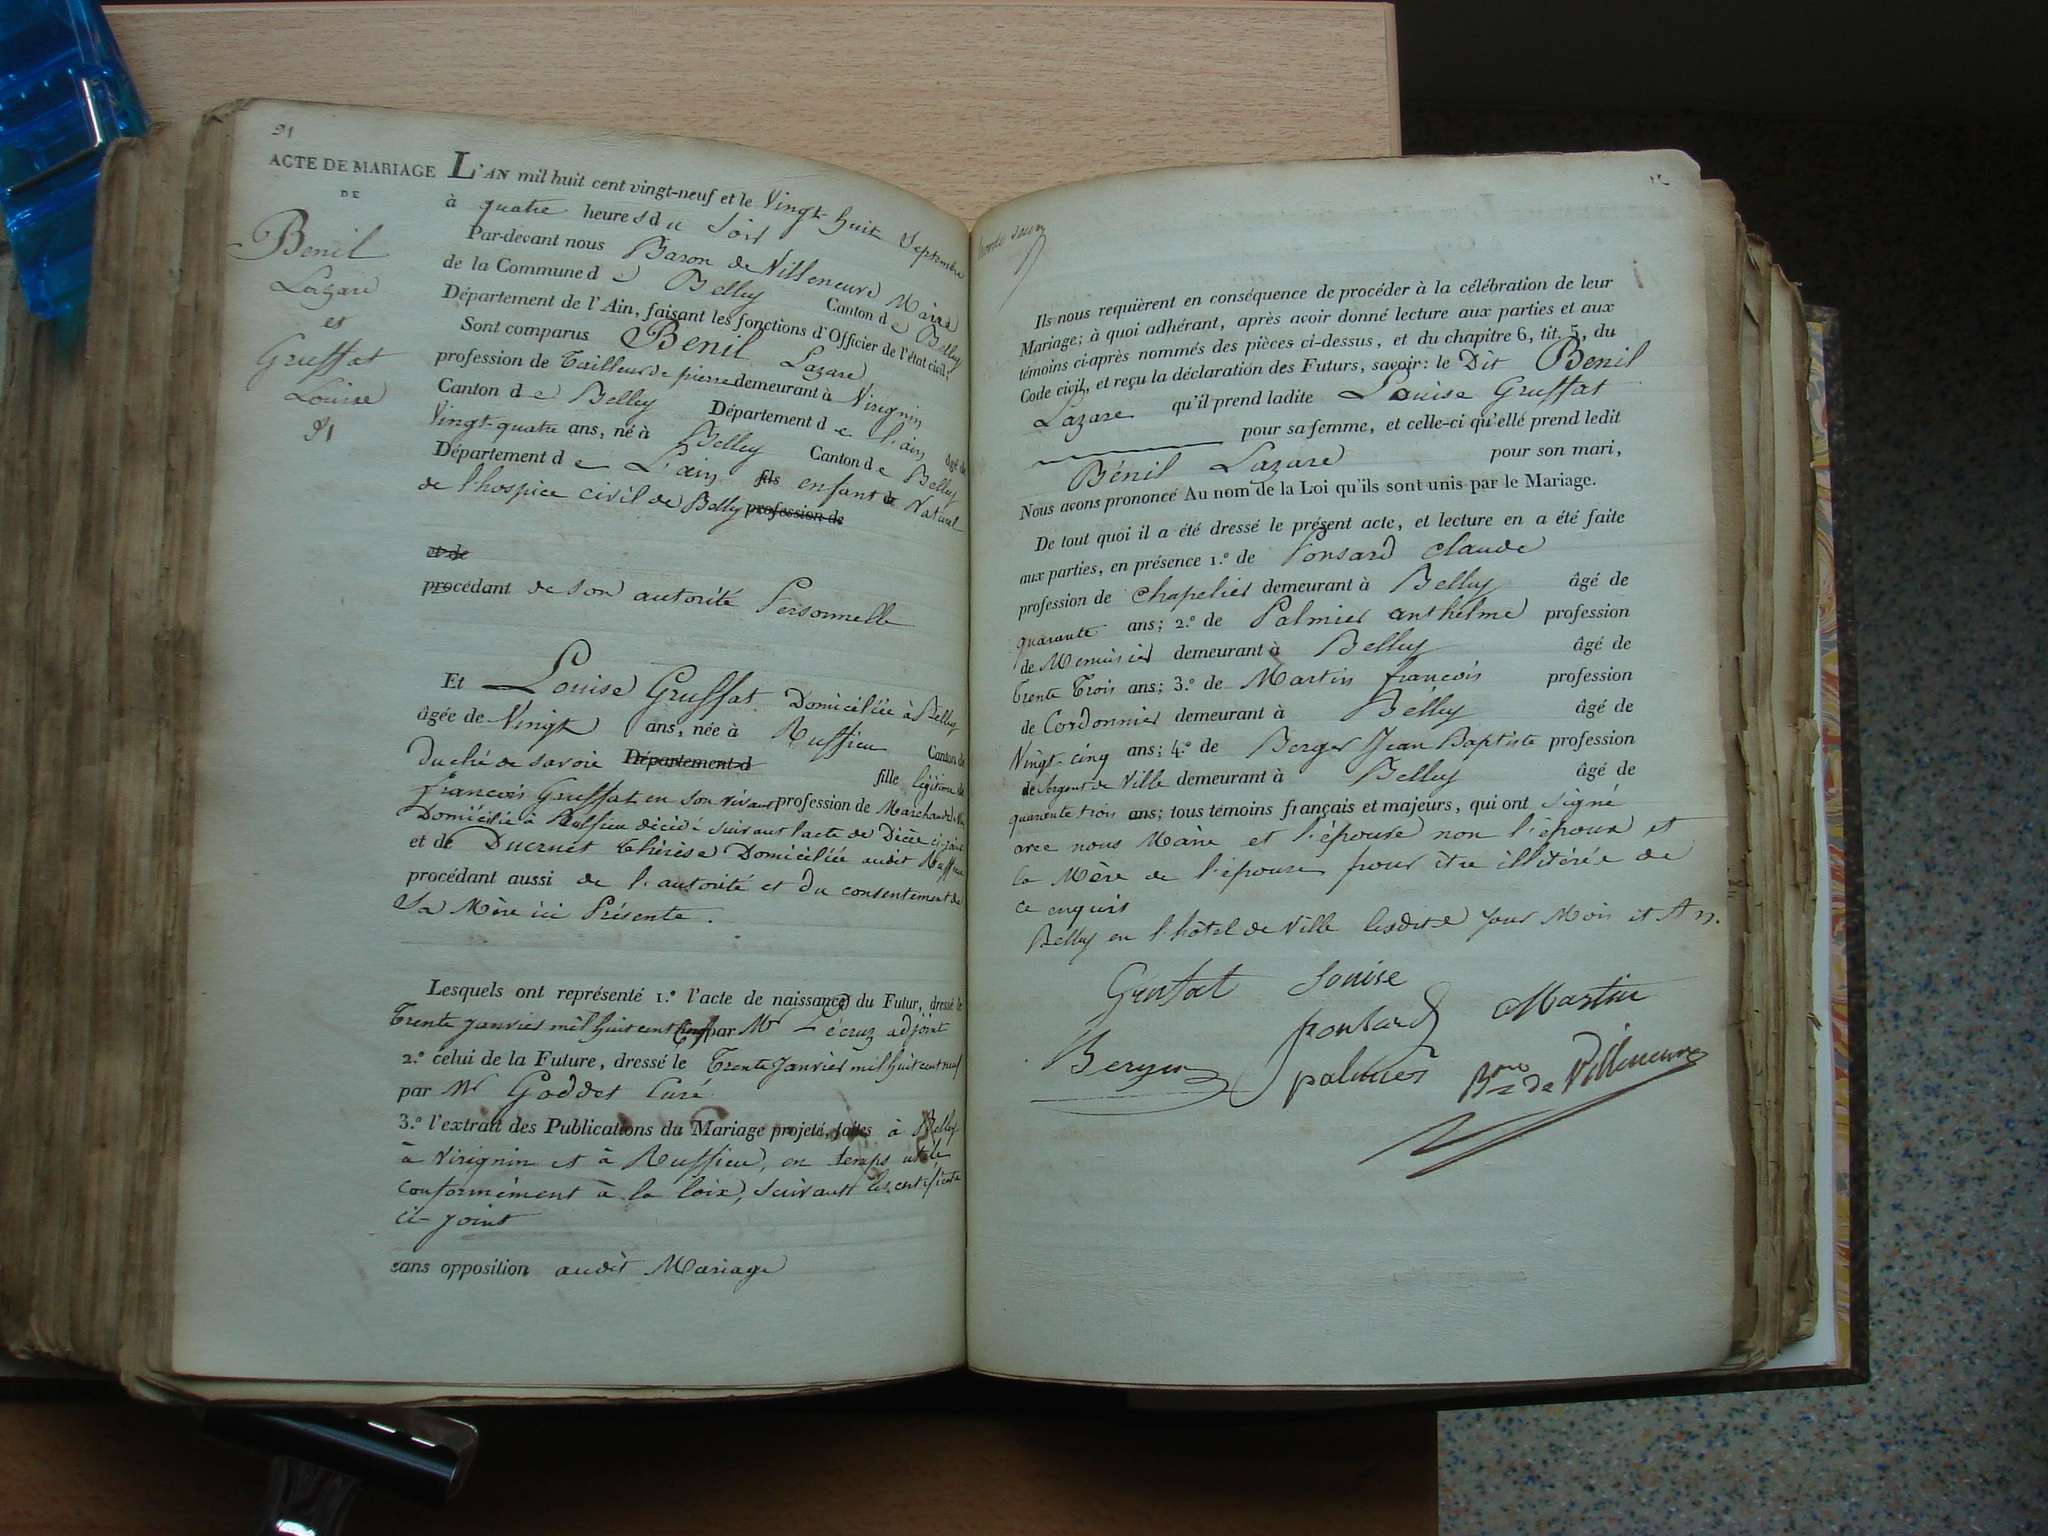 91
ACTE DE MARIAGE
DE
Benil
Lazare
et
Gruffat
Louise
91
L'AN mil huit cent vingt-neuf et le Vingt-huit Septembre
à quatre heures du Soir
Par-devant nous Baron de Villeneuve Maire
de la Commune de Belley Canton de Belley
Département de l'Ain, faisant les fonctions d'Officier de l'état civil;
Sont comparus Benil Lazare
profession de Tailleur de pierre demeurant à Virignin
Canton de Belley Département de l'ain âgé de
Vingt-quatre ans, né à Belley Canton de Belley
Département de L'ain fils enfant de Naturel
de l'hospice civil de Belley profession de
et de
procédant de son autorité Personnelle
Et Louise Gruffat Domiciliée à Belley
âgée de Vingt ans, née à Ruffieu Canton de
Duché de savoie Département d fille légitime de
françois Gruffat en son vivant profession de Marchand
Domicilié à Ruffieu décédé suivant l'acte de Décè ci-joint
et de Ducruet thérèse Domiciliée audit Ruffieu
procédant aussi de l'autorité et du consentement de
Sa Mère ici Présente.
Lesquels ont représenté 1.º l'acte de naissance du Futur, dressé le
Trente Janvier mil huit cent cinq par Mr Lécruz adjoint
2.º celui de la Future, dressé le Trente Janvier mil huit cent neuf
par Mr Goddet Curé
3.º l'extrait des Publications du Mariage projeté, faites à Belley
à Virignin et à Ruffieu, en temps utile
conformément à la loix, suivant les certificats
ci-joint
sans opposition audit Mariage
Ils nous requièrent en conséquence de procéder à la célébration de leur
Mariage; à quoi adhérant, après avoir donné lecture aux parties et aux
témoins ci-après nommés des pièces ci-dessus, et du chapitre 6, tit. 5, du
Code civil, et reçu la déclaration des Futurs, savoir: le Dit Benil
Lazare qu'il prend ladite Louise Gruffat
pour sa femme, et celle-ci qu'elle prend ledit
Bénil Lazare pour son mari,
Nous avons prononcé Au nom de la Loi qu'ils sont unis par le Mariage.
De tout quoi il a été dressé le présent acte, et lecture en a été faite
aux parties, en présence 1.º de Ponsard Claude
profession de Chapelier demeurant à Belley âgé de
quarante ans; 2.º de Palmier anthelme profession
de Menuisier demeurant à Belley âgé de
Trente Trois ans; 3.º de Martin françois profession
de Cordonnier demeurant à Belley âgé de
Vingt-cinq ans; 4.º de Berger Jean Baptiste profession
de Sergent de Ville demeurant à Belley âgé de
quarante trois ans; tous témoins français et majeurs, qui ont signé
avec nous Maire et l'épouse non l'époux et
la Mère de l'épouse pour être illitérée de
ce enquis
Belley en l'hôtel de Ville lesdits Jour Mois et An.
Grufat Louise
ponsard Martin
Berger palmier Bon de Villeneuve